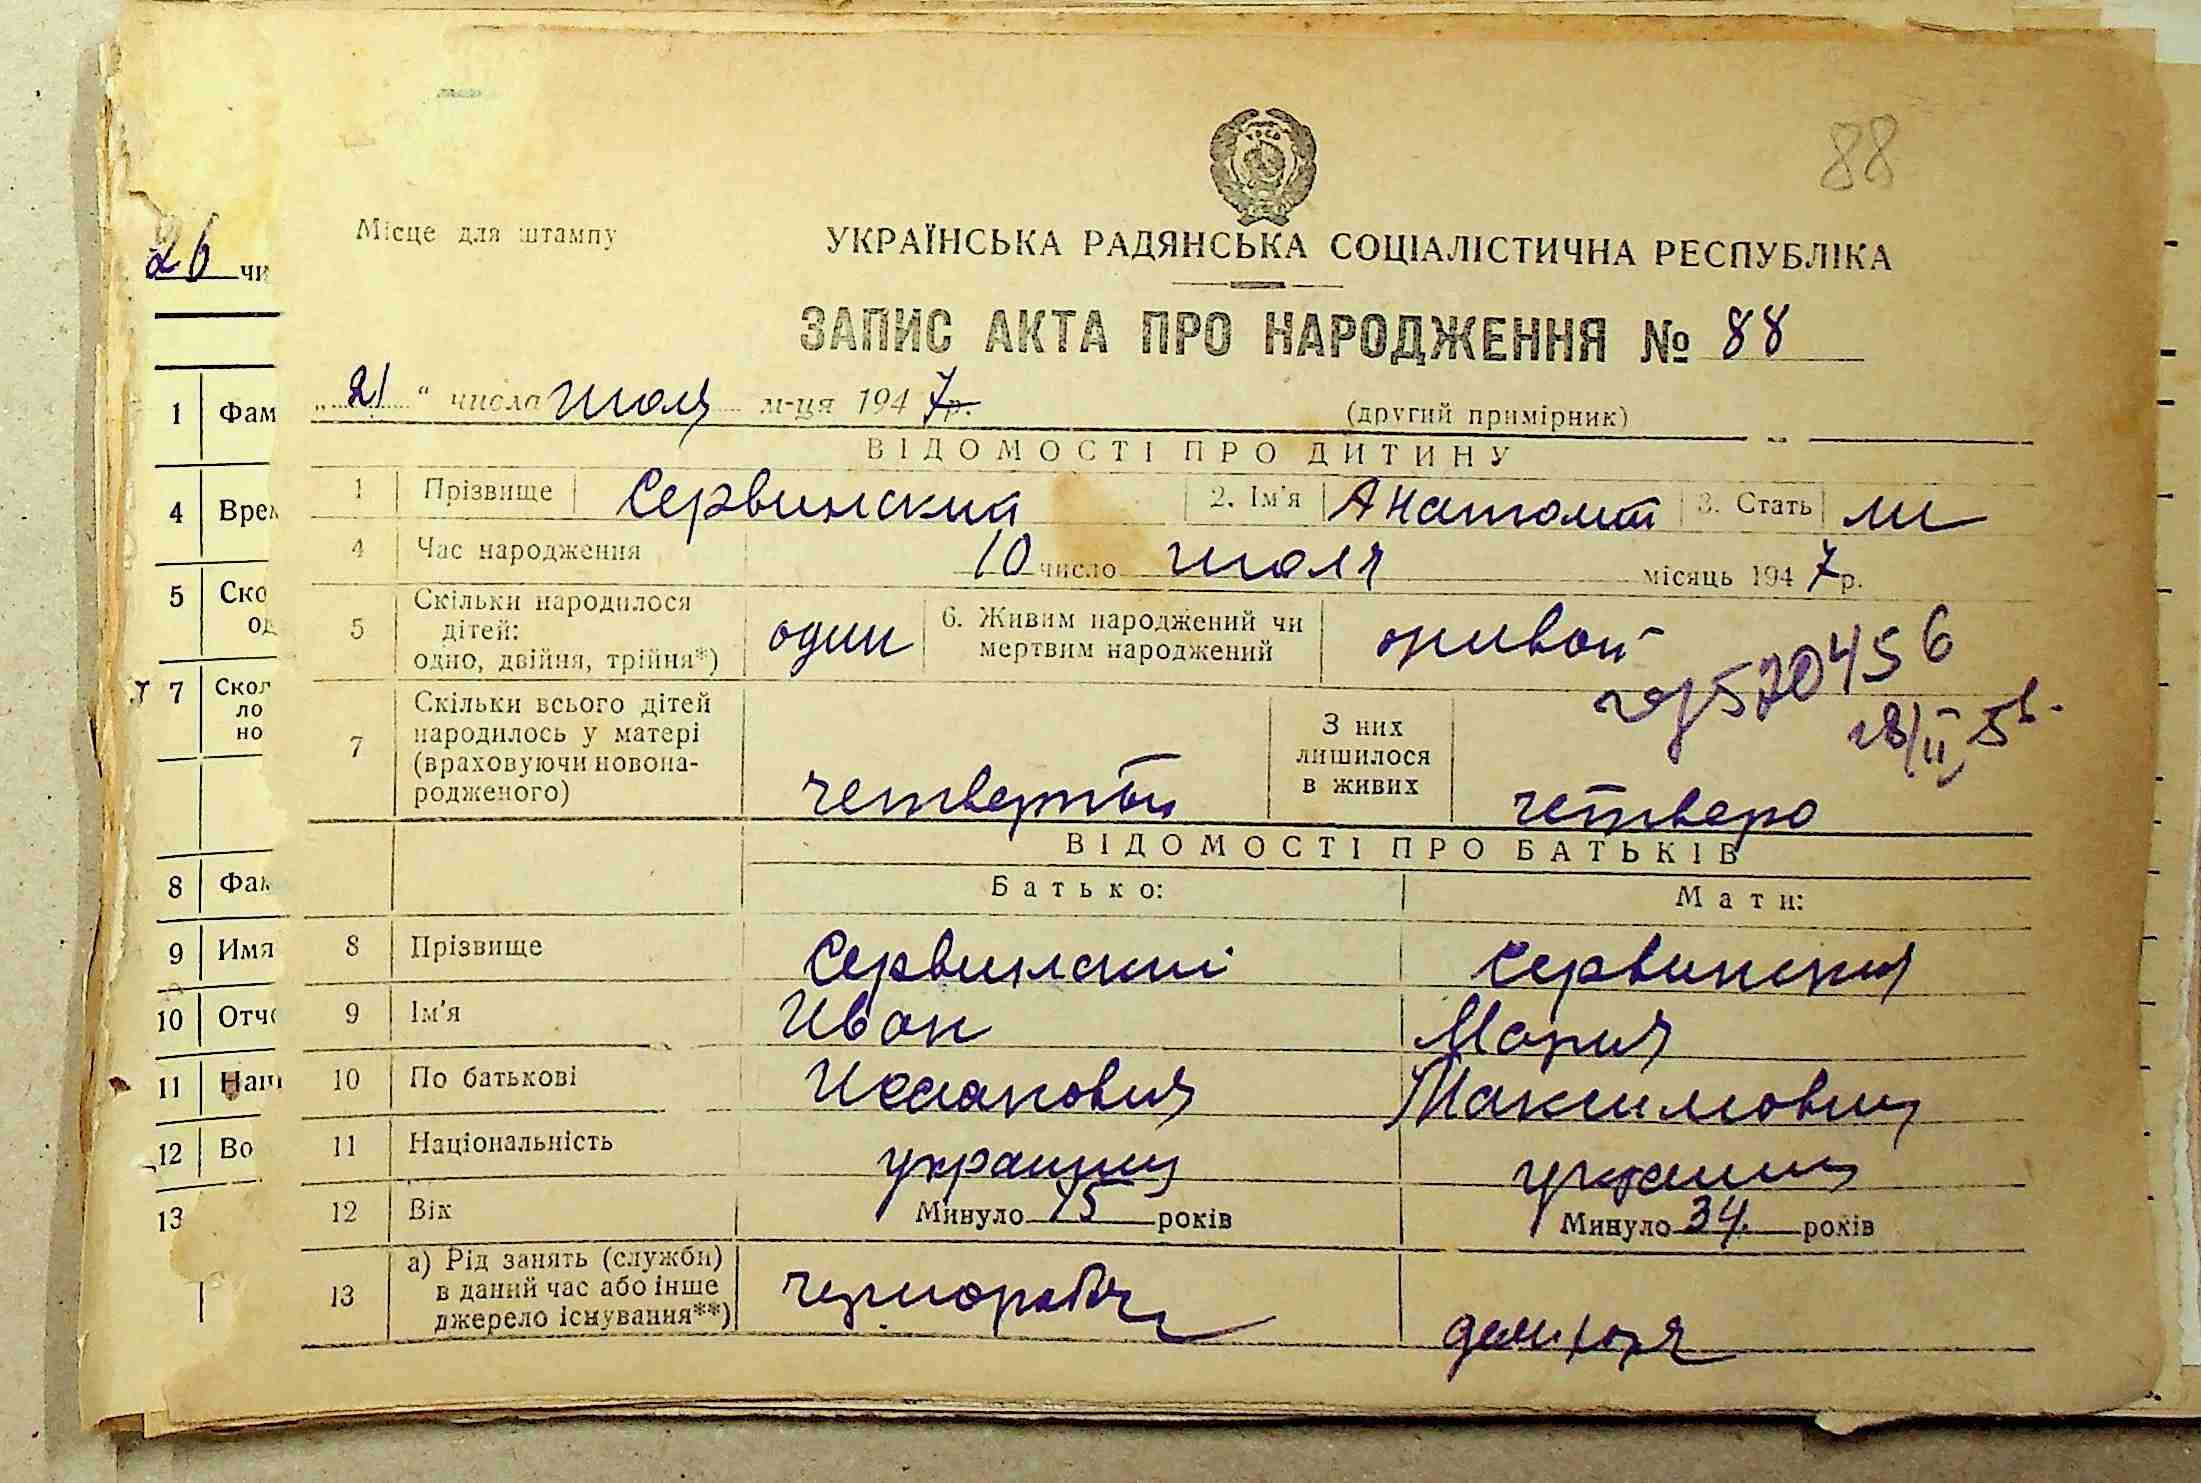 88
Місце для штампу
УКРАЇНСЬКА РАДЯНСЬКА СОЦІАЛІСТИЧНА РЕСПУБЛІКА
ЗАПИС АКТА ПРО НАРОДЖЕННЯ № 88
„21“ числа июля м-ця 1947р.
(другий примірник)
ВІДОМОСТІ ПРО ДИТИНУ
1 Прізвище Сервинский 2. Ім'я Анатолий 3. Стать м
4 Час народження 10 число июля місяць 1947р.
5 Скільки народилося дітей: одно, двійня, трійня*) один 6. Живим народжений чи мертвим народжений живой
570456
28/II
7 Скільки всього дітей народилось у матері (враховуючи новонародженого) четвертый З них лишилося в живих четверо
ВІДОМОСТІ ПРО БАТЬКІВ
Батько: Мати:
8 Прізвище Сервинский Сервинская
9 Ім'я Иван Мария
10 По батькові Максимовна
11 Національність украинец украинка
12 Вік Минуло 45 років Минуло 34 років
13 а) Рід занять (служби) в даний час або інше джерело існування**) чернораб. домхоз.
26 чи
1 Фам
4 Врем
5 Ско
од
7 Скол
ло
но
8 Фам
9 Имя
10 Отче
11 Наци
12 Во
13